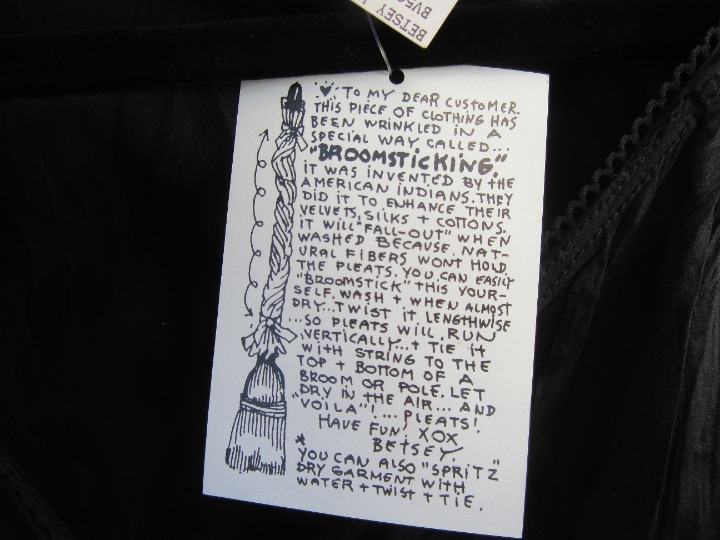 BETSEY
BV5
TO MY DEAR CUSTOMER.
THIS PIECE OF CLOTHING HAS
BEEN WRINKLED IN A
SPECIAL WAY CALLED...
"BROOMSTICKING."
IT WAS INVENTED BY THE
AMERICAN INDIANS. THEY
DID IT TO ENHANCE THEIR
VELVETS, SILKS + COTTONS.
IT WILL "FALL-OUT" WHEN
WASHED BECAUSE NAT-
URAL FIBERS WONT HOLD
THE PLEATS. YOU CAN EASILY
"BROOMSTICK" THIS YOUR-
SELF. WASH + WHEN ALMOST
DRY... TWIST IT LENGTHWISE
...SO PLEATS WILL RUN
VERTICALLY...+ TIE IT
WITH STRING TO THE
TOP + BOTTOM OF A
BROOM OR POLE. LET
DRY IN THE AIR... AND
"VOILA"!... PLEATS!
HAVE FUN! XOX
BETSEY.
* YOU CAN ALSO "SPRITZ"
DRY GARMENT WITH
WATER + TWIST + TIE.